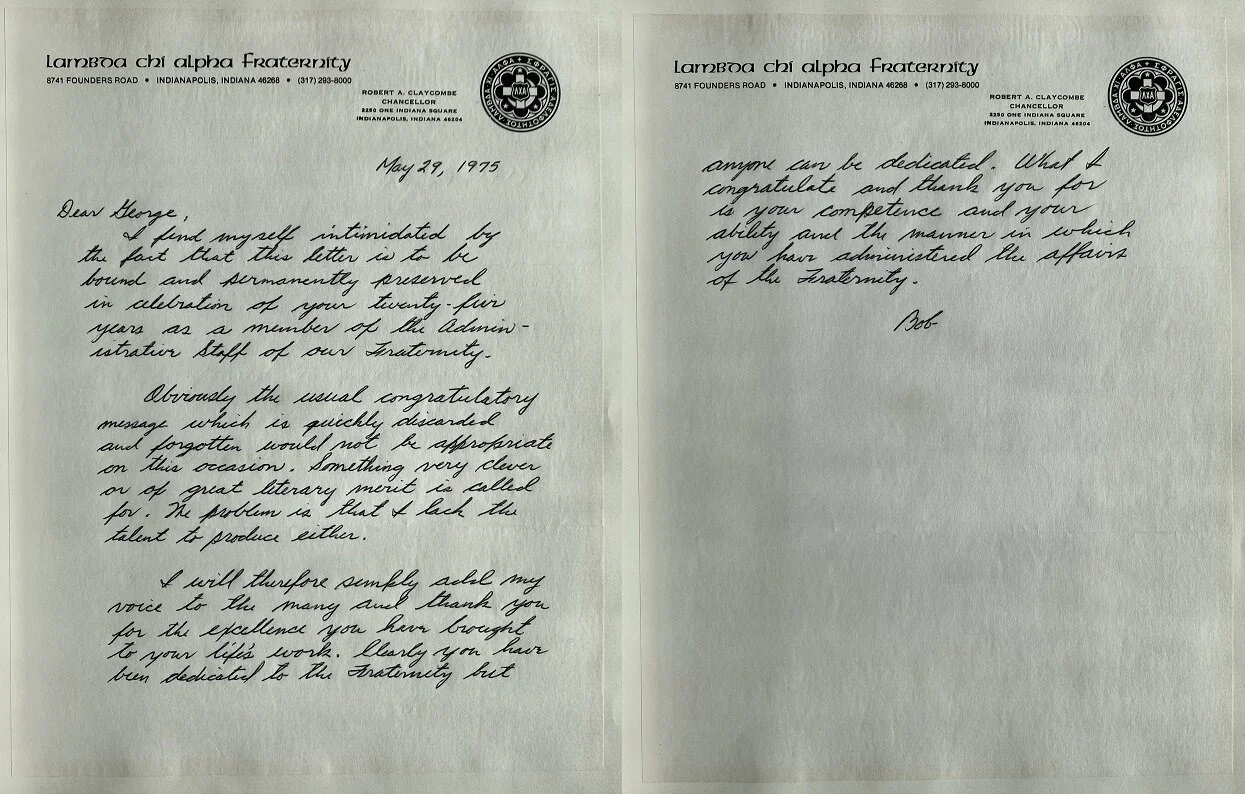 Lambda Chi Alpha Fraternity
8741 FOUNDERS ROAD • INDIANAPOLIS, INDIANA 46268 • (317) 293-8000
ROBERT A. CLAYCOMBE
CHANCELLOR
2250 ONE INDIANA SQUARE
INDIANAPOLIS, INDIANA 46204
May 29, 1975
Dear George,
I find myself intimidated by
the fact that this letter is to be
bound and permanently preserved
in celebration of your twenty-five
years as a member of the Admin-
istrative Staff of our Fraternity.
Obviously the usual congratulatory
message which is quickly discarded
and forgotten would not be appropriate
on this occasion. Something very clever
or of great literary merit is called
for. The problem is that I lack the
talent to produce either.
I will therefore simply add my
voice to the many and thank you
for the excellence you have brought
to your life's work. Clearly you have
been dedicated to the Fraternity but
Lambda Chi Alpha Fraternity
8741 FOUNDERS ROAD • INDIANAPOLIS, INDIANA 46268 • (317) 293-8000
ROBERT A. CLAYCOMBE
CHANCELLOR
2250 ONE INDIANA SQUARE
INDIANAPOLIS, INDIANA 46204
ΛΧΑ
anyone can be dedicated. What I
congratulate and thank you for
is your competence and your
ability and the manner in which
you have administered the affairs
of the Fraternity.
Bob